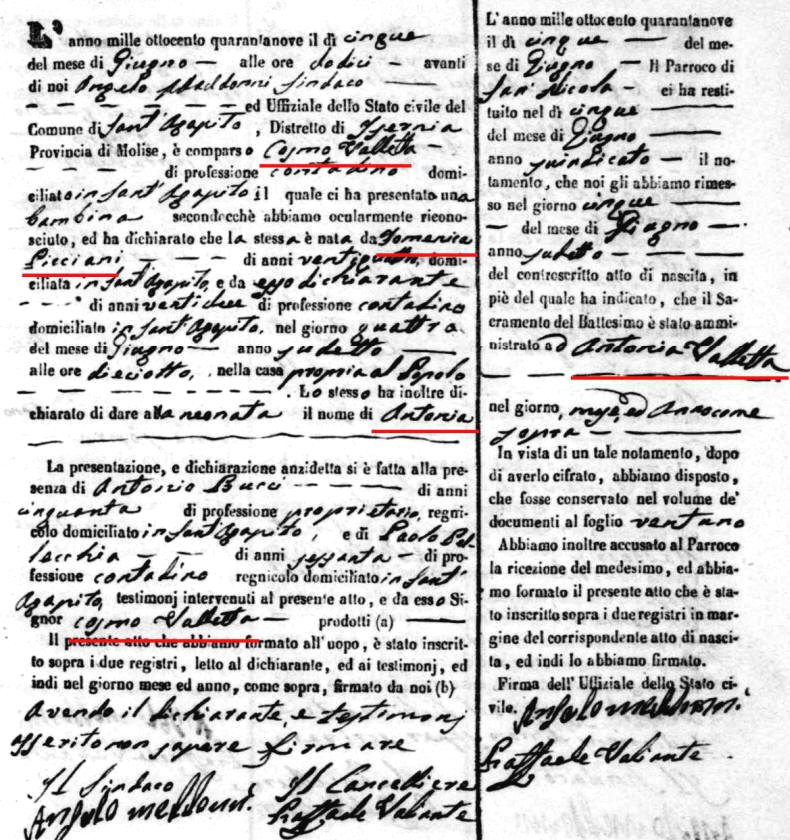 L' anno mille ottocento quarantanove il dì cinque
del mese di Giugno — alle ore dodici — avanti
di noi Angelo Sindaco
ed Uffiziale dello Stato civile del
Comune di Sant'Agapito , Distretto di Isernia
Provincia di Molise, è comparso Cosmo Valletta
di professione contadino domi-
ciliato in Sant'Agapito il quale ci ha presentato una
bambina secondecchè abbiamo ocularmente ricono-
sciuto, ed ha dichiarato che la stessa è nata da Domenica
Picciani di anni domi-
ciliata in Sant'Agapito, e da esso dichiarante
di anni di professione contadino
domiciliato in Sant'Agapito, nel giorno quattro
del mese di Giugno — anno sudetto
alle ore dieciotto, nella casa propria al Popolo
Lo stesso ha inoltre di-
chiarato di dare alla neonata il nome di Antonia
La presentazione, e dichiarazione anzidetta si è fatta alla pre-
senza di Antonio Bucci di anni
cinquanta di professione proprietario, regni-
colo domiciliato in Sant'Agapito, e di Paolo Pel-
lecchia di anni sessanta — di pro-
fessione contadino regnicolo domiciliato in Sant'
Agapito, testimonj intervenuti al presente atto, e da esso Si-
gnor Cosmo Valletta — prodotti (a)
Il presente atto che abbiamo formato all'uopo, è stato inscrit-
to sopra i due registri, letto al dichiarante, ed ai testimonj, ed
indi nel giorno mese ed anno, come sopra, firmato da noi (b)
Avendo il dichiarante, e testimonj
asserito non sapere firmare
Il Sindaco Il Cancelliere
Angelo Raffaele Valiante
L' anno mille ottocento quarantanove
il dì cinque — del me-
se di Giugno — Il Parroco di
San Nicola — ci ha resti-
tuito nel dì cinque
del mese di Giugno
anno — il no-
tamento, che noi gli abbiamo rimes-
so nel giorno cinque
— del mese di Giugno —
anno sudetto
del controscritto atto di nascita, in
piè del quale ha indicato, che il Sa-
cramento del Battesimo è stato ammi-
nistrato ad Antonia Valletta
nel giorno, mese, ed Anno come
sopra
In vista di un tale notamento, dopo
di averlo cifrato, abbiamo disposto,
che fosse conservato nel volume de'
documenti al foglio ventuno
Abbiamo inoltre accusato al Parroco
la ricezione del medesimo, ed abbia-
mo formato il presente atto che è sta-
to inscritto sopra i due registri in mar-
gine del corrispondente atto di nasci-
ta, ed indi lo abbiamo firmato.
Firma dell' Uffiziale dello Stato ci-
vile. Angelo
Raffaele Valiante